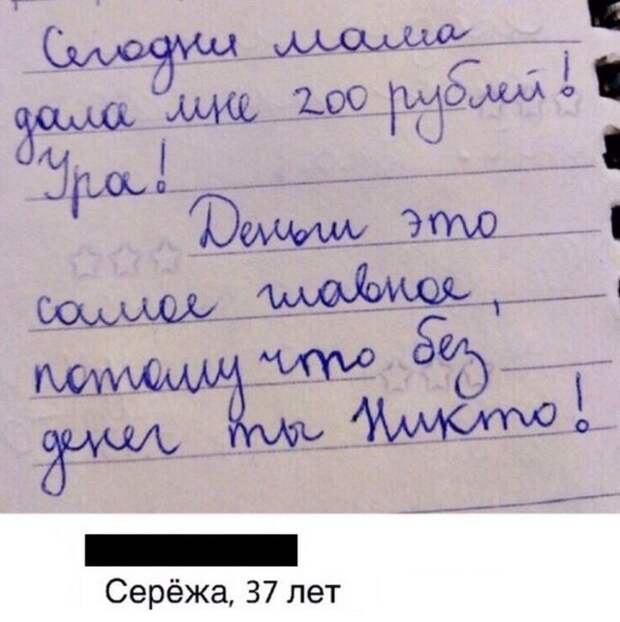 Сегодня мама
дала мне 200 рублей!
Ура!
Деньги это
самое главное,
потому что без
денег ты Никто!
Серёжа, 37 лет